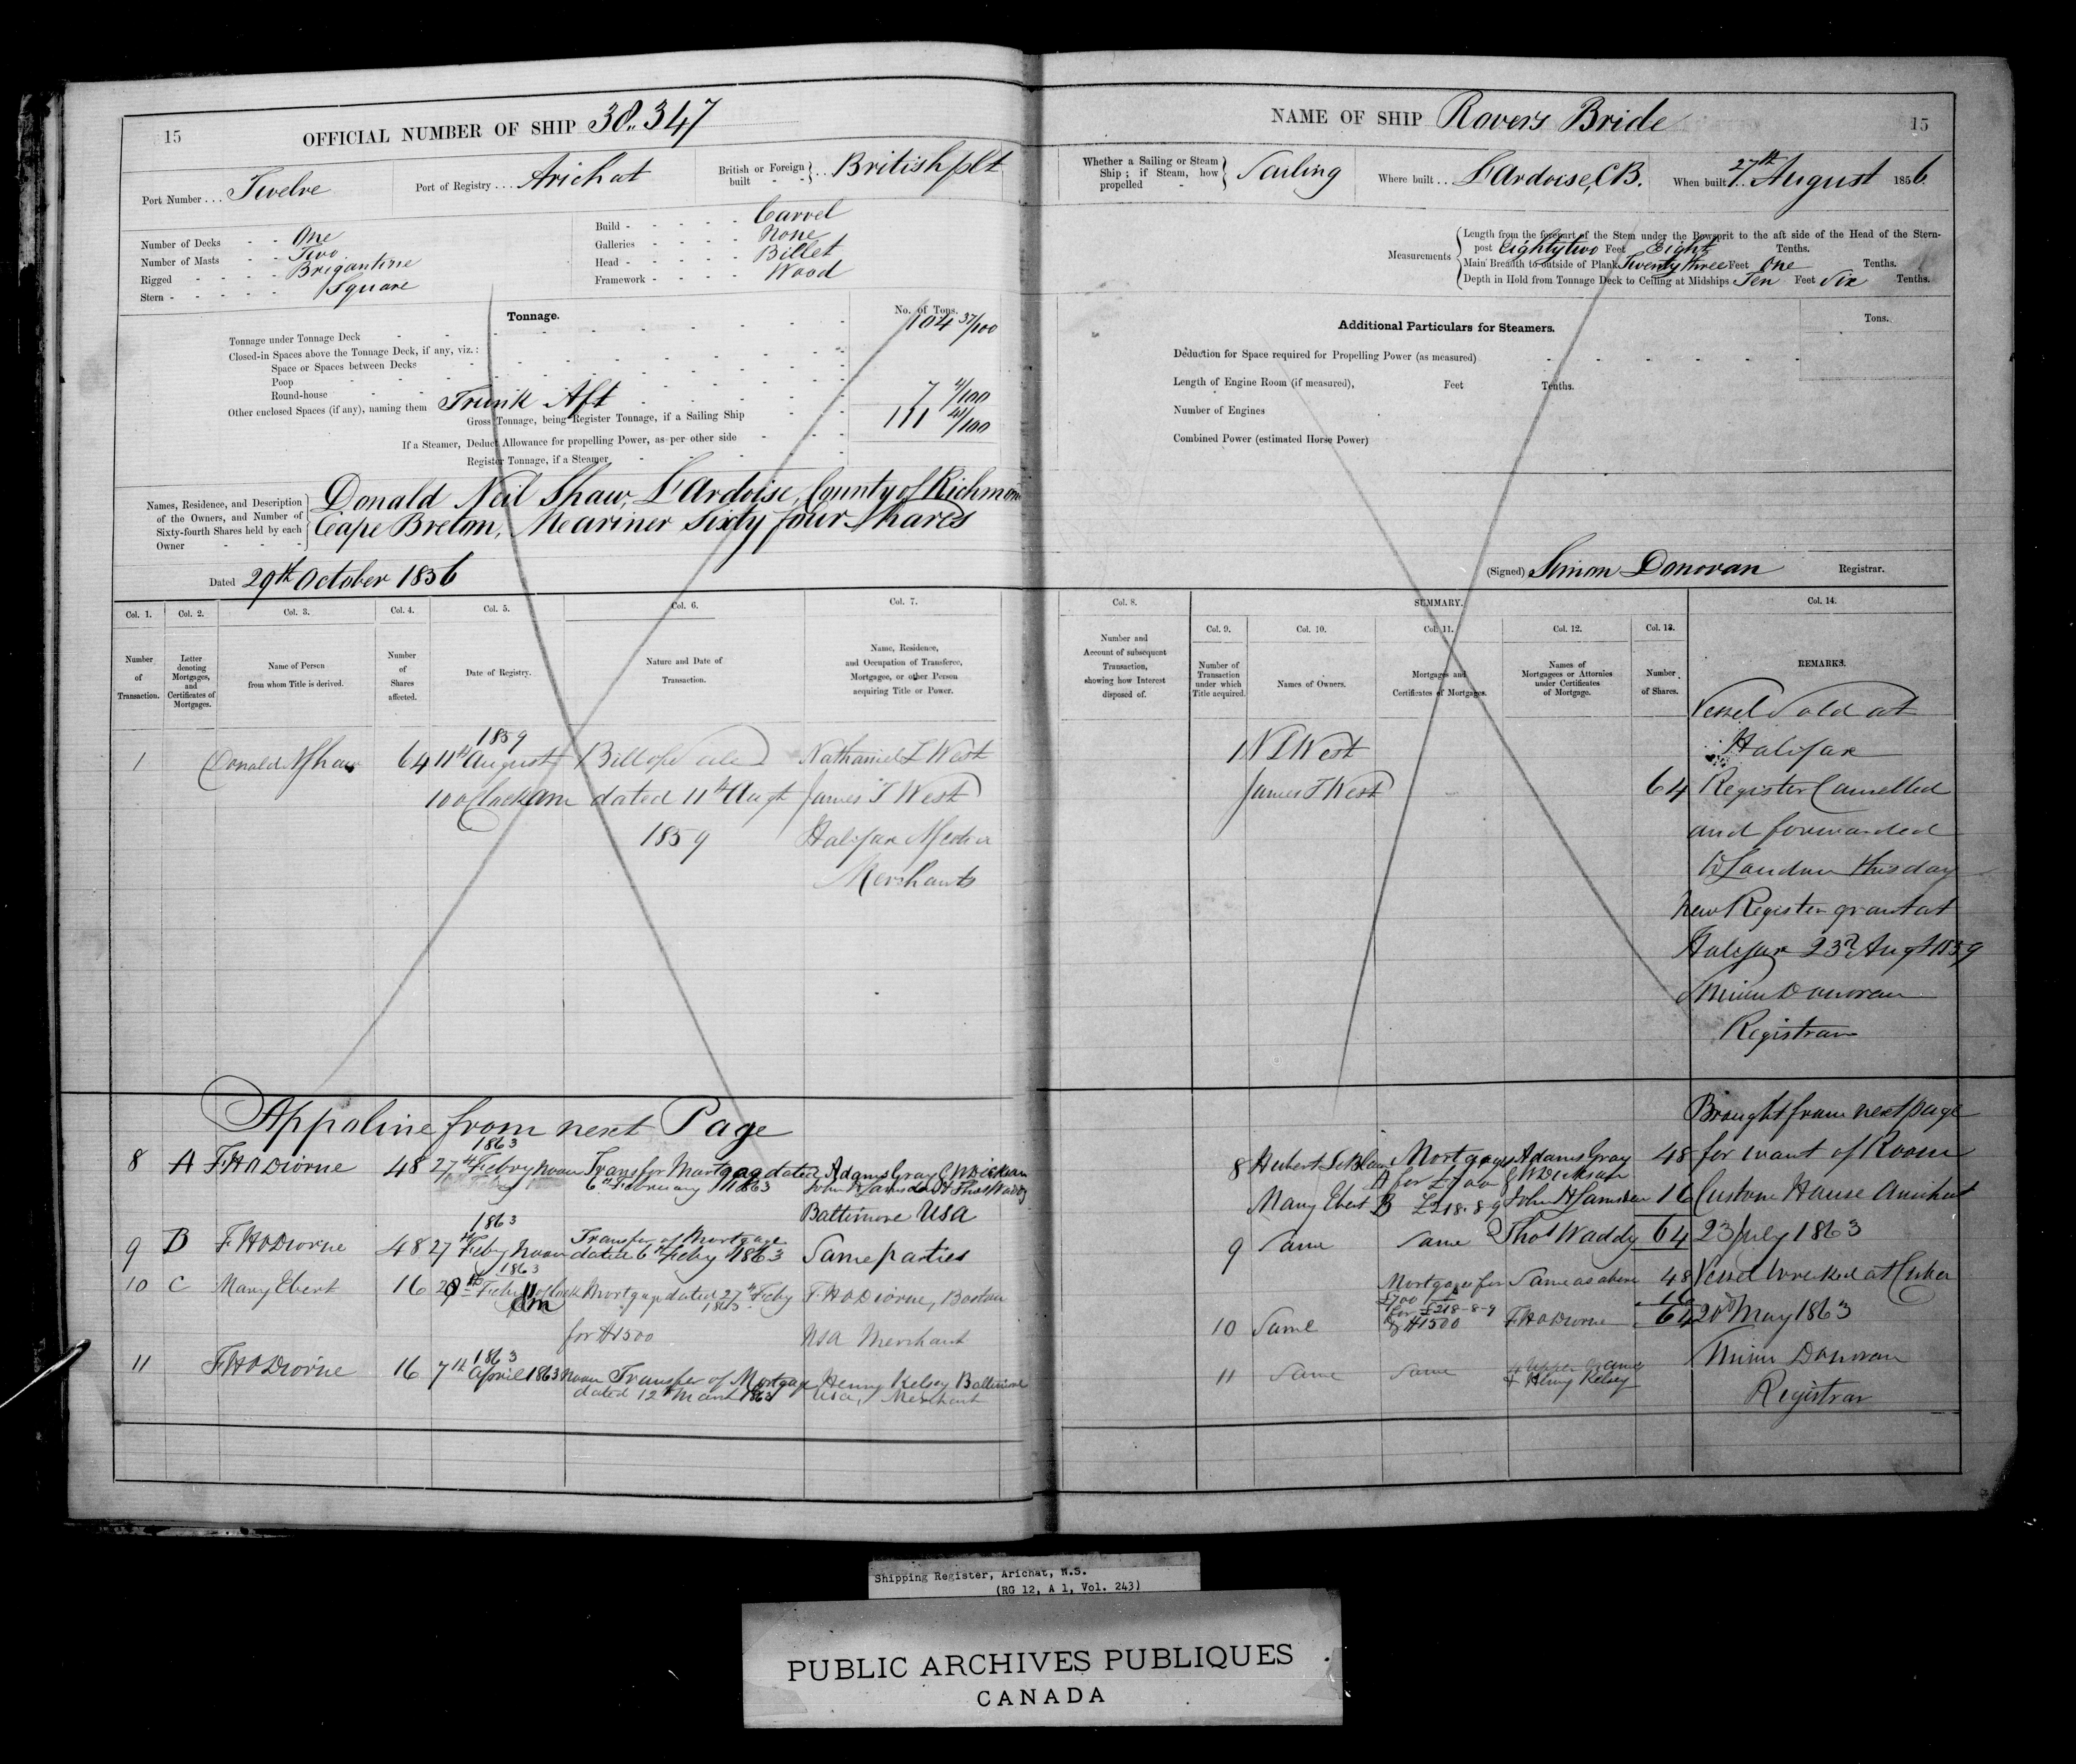 15
OFFICIAL NUMBER OF SHIP 38.347
Port Number . . . Twelve
Port of Registry . . . Arichat
British or Foreign built - - British plt
Number of Decks - - One
Number of Masts - - Two
Rigged - - - - Brigantine
Stern - - - - - Square
Build - - - - - Carvel
Galleries - - - - - None
Head - - - - - Billet
Framework - - - - Wood
Tonnage.
No. of Tons.
Tonnage under Tonnage Deck 104 37/100
Closed-in Spaces above the Tonnage Deck, if any, viz.:
Space or Spaces between Decks
Poop
Round-house
Other enclosed Spaces (if any), naming them Trunk Aft 7 4/100
Gross Tonnage, being Register Tonnage, if a Sailing Ship 111 41/100
If a Steamer, Deduct Allowance for propelling Power, as per other side
Register Tonnage, if a Steamer
Names, Residence, and Description of the Owners, and Number of Sixty-fourth Shares held by each Owner
Donald Neil Shaw, L'Ardoise, County of Richmond
Cape Breton, Mariner Sixty four Shares
Dated 29th October 1856
NAME OF SHIP Rovers Bride
15
Whether a Sailing or Steam Ship; if Steam, how propelled - Sailing
Where built . . . L'Ardoise, CB.
When built . . 27th August 1856
Measurements
Length from the forepart of the Stem under the Bowsprit to the aft side of the Head of the Stern-
post Eighty two Feet Eight Tenths.
Main Breadth to outside of Plank Twenty three Feet One Tenths.
Depth in Hold from Tonnage Deck to Ceiling at Midships Ten Feet Six Tenths.
Additional Particulars for Steamers.
Tons.
Deduction for Space required for Propelling Power (as measured)
Length of Engine Room (if measured), Feet Tenths.
Number of Engines
Combined Power (estimated Horse Power)
(Signed) Simon Donovan Registrar.
Col. 1. Col. 2. Col. 3. Col. 4. Col. 5. Col. 6. Col. 7.
Number of Transaction.
Letter denoting Mortgages, and Certificates of Mortgages.
Name of Person from whom Title is derived.
Number of Shares affected.
Date of Registry.
Nature and Date of Transaction.
Name, Residence, and Occupation of Transferee, Mortgagee, or other Person acquiring Title or Power.
Col. 8.
Number and Account of subsequent Transaction, showing how Interest disposed of.
SUMMARY.
Col. 9. Col. 10. Col. 11. Col. 12. Col. 13. Col. 14.
Number of Transaction under which Title acquired.
Names of Owners.
Mortgages and Certificates of Mortgages.
Names of Mortgagees or Attornies under Certificates of Mortgage.
Number of Shares.
REMARKS.
1859
1 Donald N Shaw 64 11th August Bill of Sale Nathaniel L West
10 oClock am dated 11th Augt James T West
1859 Halifax
Merchants
1 N L West
James T West 64
Vessel Sold at
Halifax
Register Cancelled
and forwarded
to London this day
new Register grant at
Halifax 23rd Augt 1859
Simon Donovan
Registrar
Appoline from next Page
1863
8 A F H Odiorne 48 27th Febry Noon Transfer Mortgage dated Adams Gray
6th February 1863
Baltimore USA
1863
9 B F H Odiorne 48 27th Feby Noon Transfer of Mortgage
dated 6th Feby 1863 Same parties
1863
10 C Mary Ebert 16 Mortgage dated 27th Feby F H Odiorne, Boston
1863
for $1500 USA Merchant
1863
11 F H Odiorne 16 7th April 1863 Noon Transfer of Mortgage Henry Kelsey Baltimore
dated 12th March 1863 USA, Merchant
8 Mortgage Adams Gray 48
A for £700
Mary Ebert B £218-8-9 16
9 Same Same Thos Waddy 64
Mortgages for Same as above 48
£700 16
for £218-8-9
10 Same $1500 F H Odiorne 64
11 Same Same
& Henry Kelsey
Brought from next page
for want of Room
Custom House Arichat
23 July 1863
Vessel Wrecked at Cuba
20th May 1863
Simon Donovan
Registrar
Shipping Register, Arichat, N.S.
(RG 12, A 1, Vol. 243)
PUBLIC ARCHIVES PUBLIQUES
CANADA